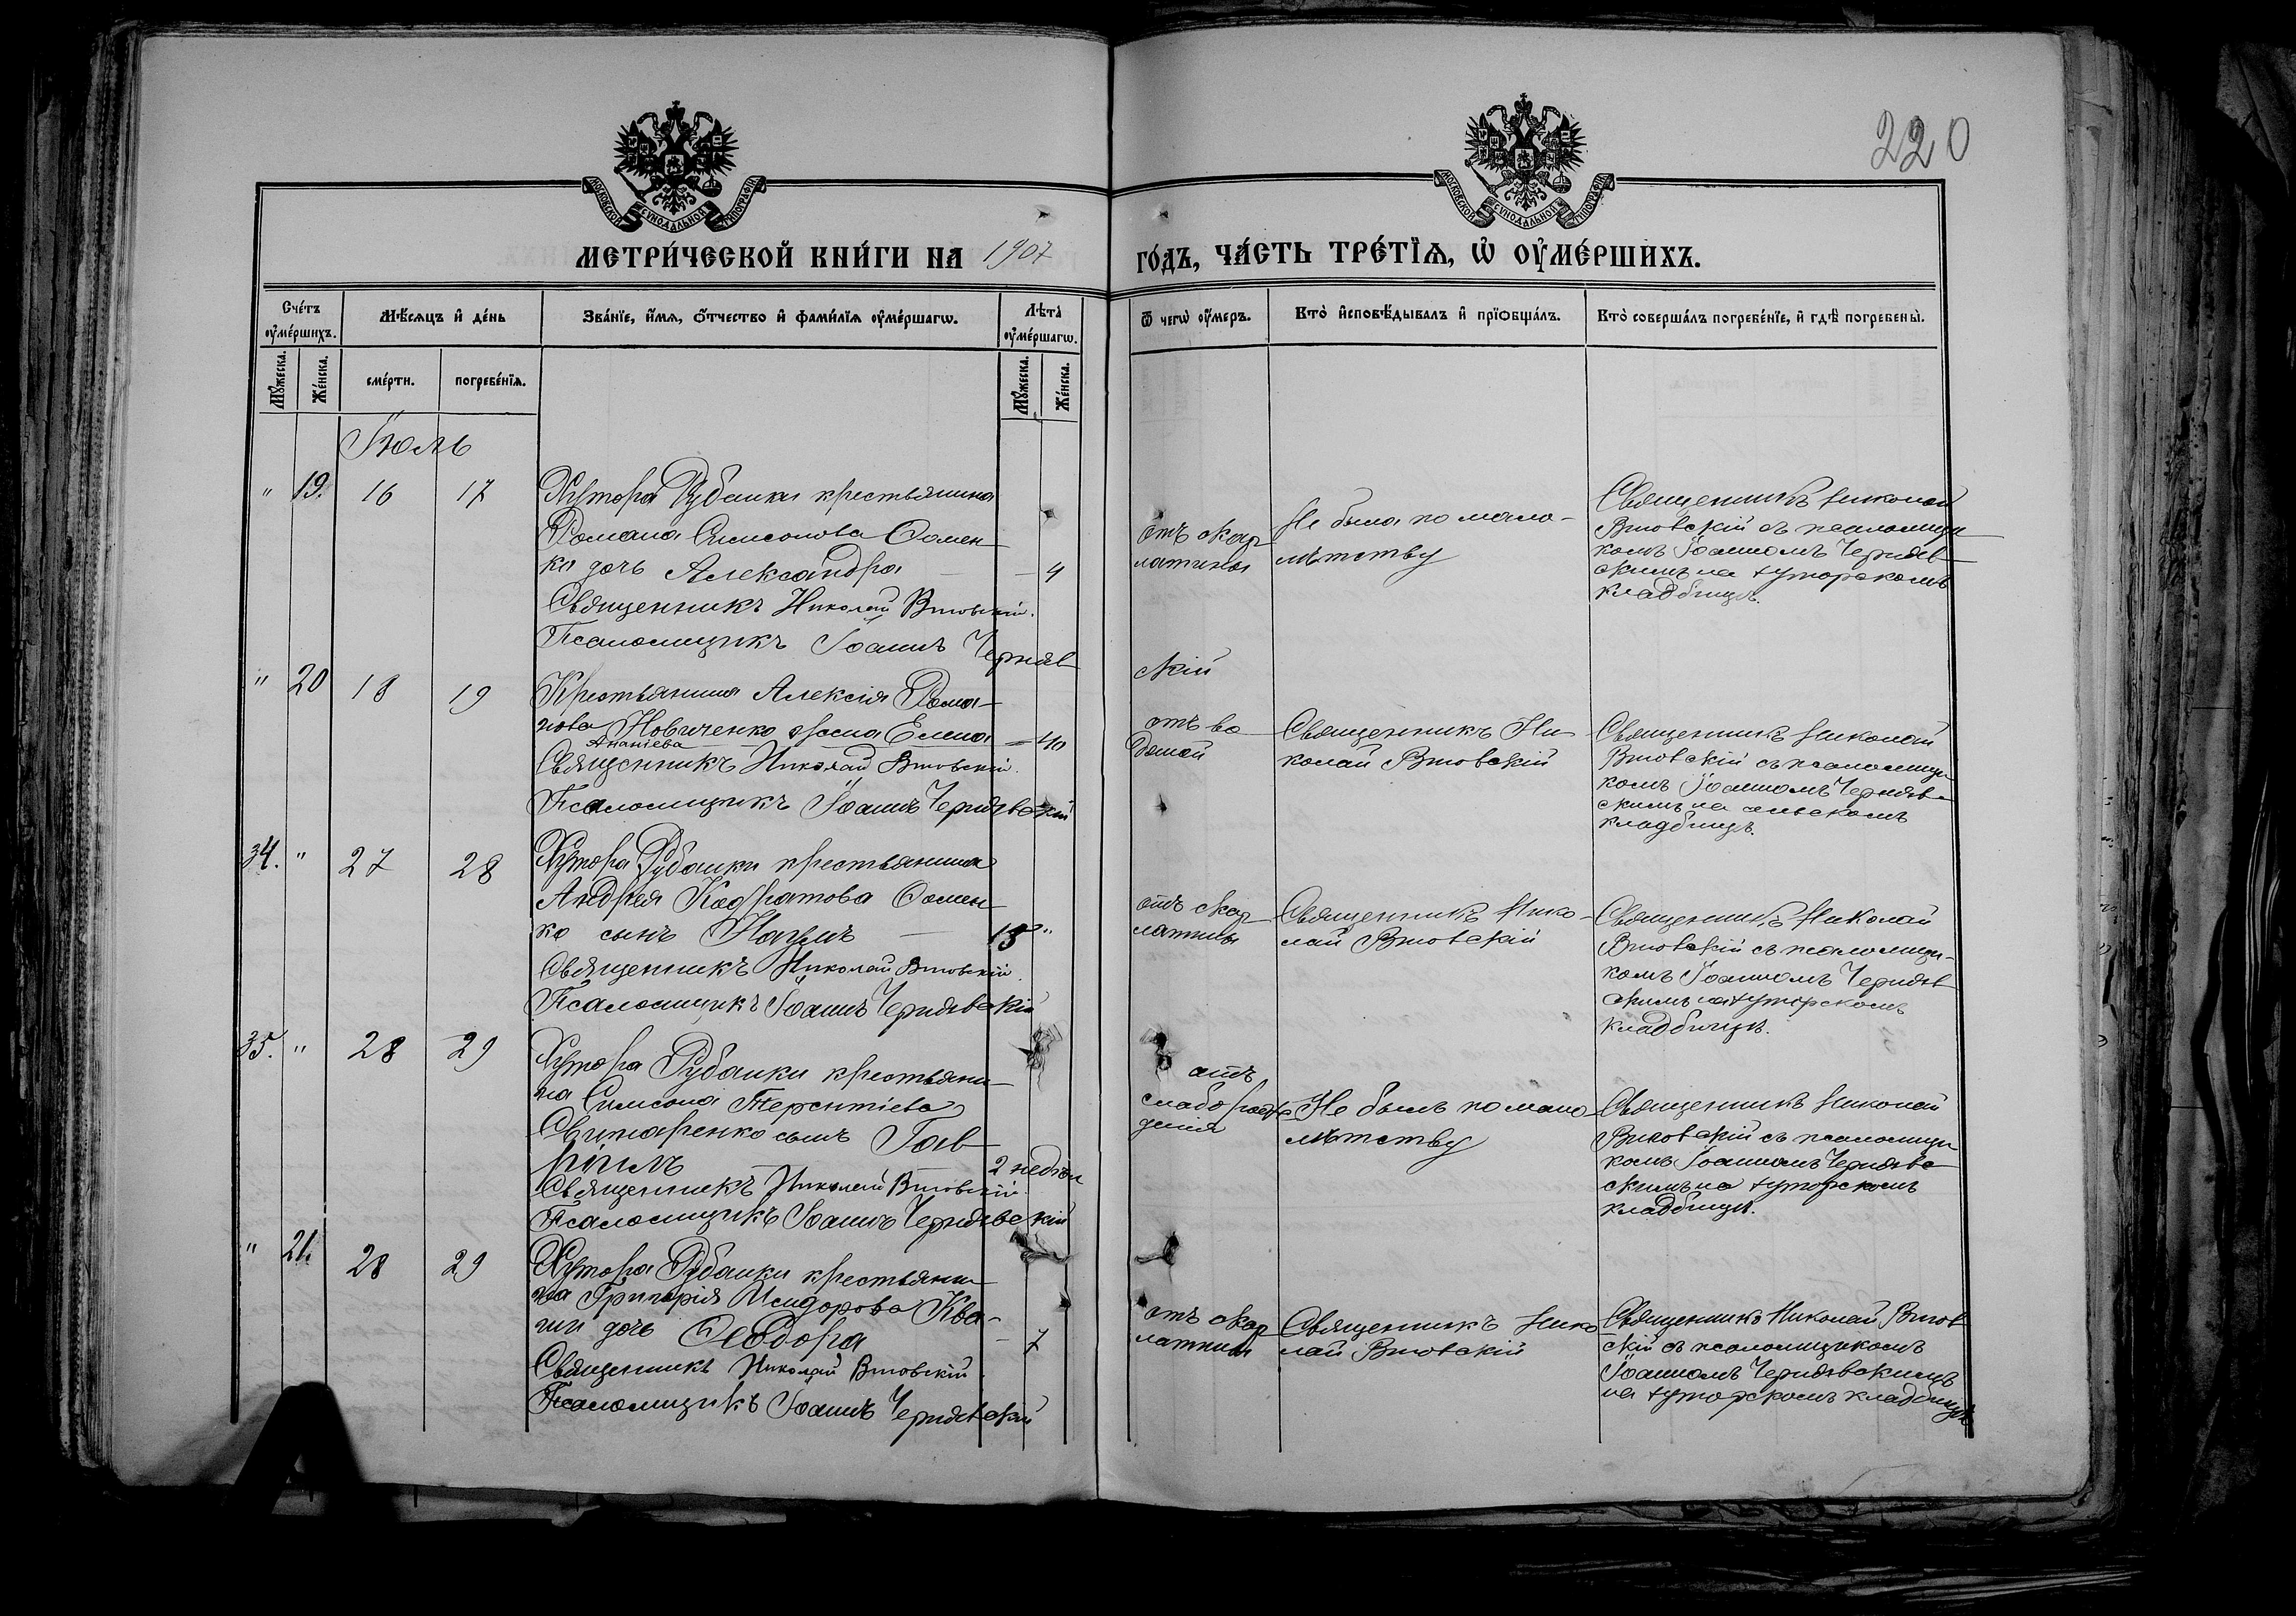 220
МОСКОВСКОЙ СѴНОДАЛЬНОЙ ТИПОГРАФІИ
МОСКОВСКОЙ СѴНОДАЛЬНОЙ ТИПОГРАФІИ
МЕТРИ́ЧЕСКОЙ КНИ́ГИ НА 1907
ГО́ДЪ, ЧА́СТЬ ТРЕ́ТЇѦ, Ѡ҆ ОУ҆МЕ́РШИХЪ.
Сче́тъ оу҆ме́ршихъ.
Мѣ́сѧцъ и҆ де́нь
Зва́нїе, и҆́мѧ, ѻ҆́тчество и҆ фами́лїѧ оу҆ме́ршагѡ.
Лѣта̀ оу҆ме́ршагѡ.
Ѿ чегѡ̀ оу҆́меръ.
Кто̀ и҆сповѣ́дывалъ и҆ прїѡбща́лъ.
Кто̀ соверша́лъ погребе́нїе, и҆ гдѣ̀ погребены̀.
Мꙋ́жеска.
Же́нска.
сме́рти.
погребе́нїѧ.
Мꙋ́жеска.
Же́нска.
Іюль
" 19. 16 17
Хутора Рубанки крестьянина
Романа Симеонова Фомен-
ки дочь Александра — 4
Священникъ Николай Витовскій.
Псаломщикъ Іоаннъ Черняв-
отъ скар-
латины
Не была по мало-
лѣтству
Священникъ Николай
Витовскій съ псаломщи-
комъ Іоанномъ Черняв-
скимъ на хуторскомъ
кладбищѣ.
скій
" 20 18 19
Крестьянина Алексія Рома-
нова Новиченко жена Елена
Ананіева — 40
Священникъ Николай Витовскій.
Псаломщикъ Іоаннъ Чернявскій
отъ во-
дяной
Священникъ Ни-
колай Витовскій
Священникъ Николай
Витовскій съ псаломщи-
комъ Іоанномъ Чернявс-
кимъ на сельскомъ
кладбищѣ.
34. " 27 28
Хутора Рубанки крестьянина
Андрея Кодратова Фомен-
ко сынъ Наумъ — 13 "
Священникъ Николай Витовскій.
Псаломщикъ Іоаннъ Чернявскій
отъ скар-
латины
Священникъ Нико-
лай Витовскій
Священникъ Николай
Витовскій съ псаломщи-
комъ Іоанномъ Черняв-
скимъ на хуторскомъ
кладбищѣ.
35. " 28 29
Хутора Рубанки крестьяни-
на Симеона Терентіева
Свинаренко сынъ Гав-
ріилъ 2 недѣли
Священникъ Николай Витовскій.
Псаломщикъ Іоаннъ Чернявскій
отъ
слаборож-
денія
Не былъ по мало-
лѣтству
Священникъ Николай
Витовскій съ псаломщи-
комъ Іоанномъ Чернявс-
кимъ на хуторскомъ
кладбищѣ.
" 21. 28 29
Хутора Рубанки крестьяни-
на Григорія Исидорова Ква-
ши дочь Ѳеодора — 7
Священникъ Николай Витовскій
Псаломщикъ Іоаннъ Чернявскій
отъ скар-
латины
Священникъ Нико-
лай Витовскій
Священникъ Николай Витов-
скій съ псаломщикомъ
Іоанномъ Чернявскимъ
на хуторскомъ кладбищѣ